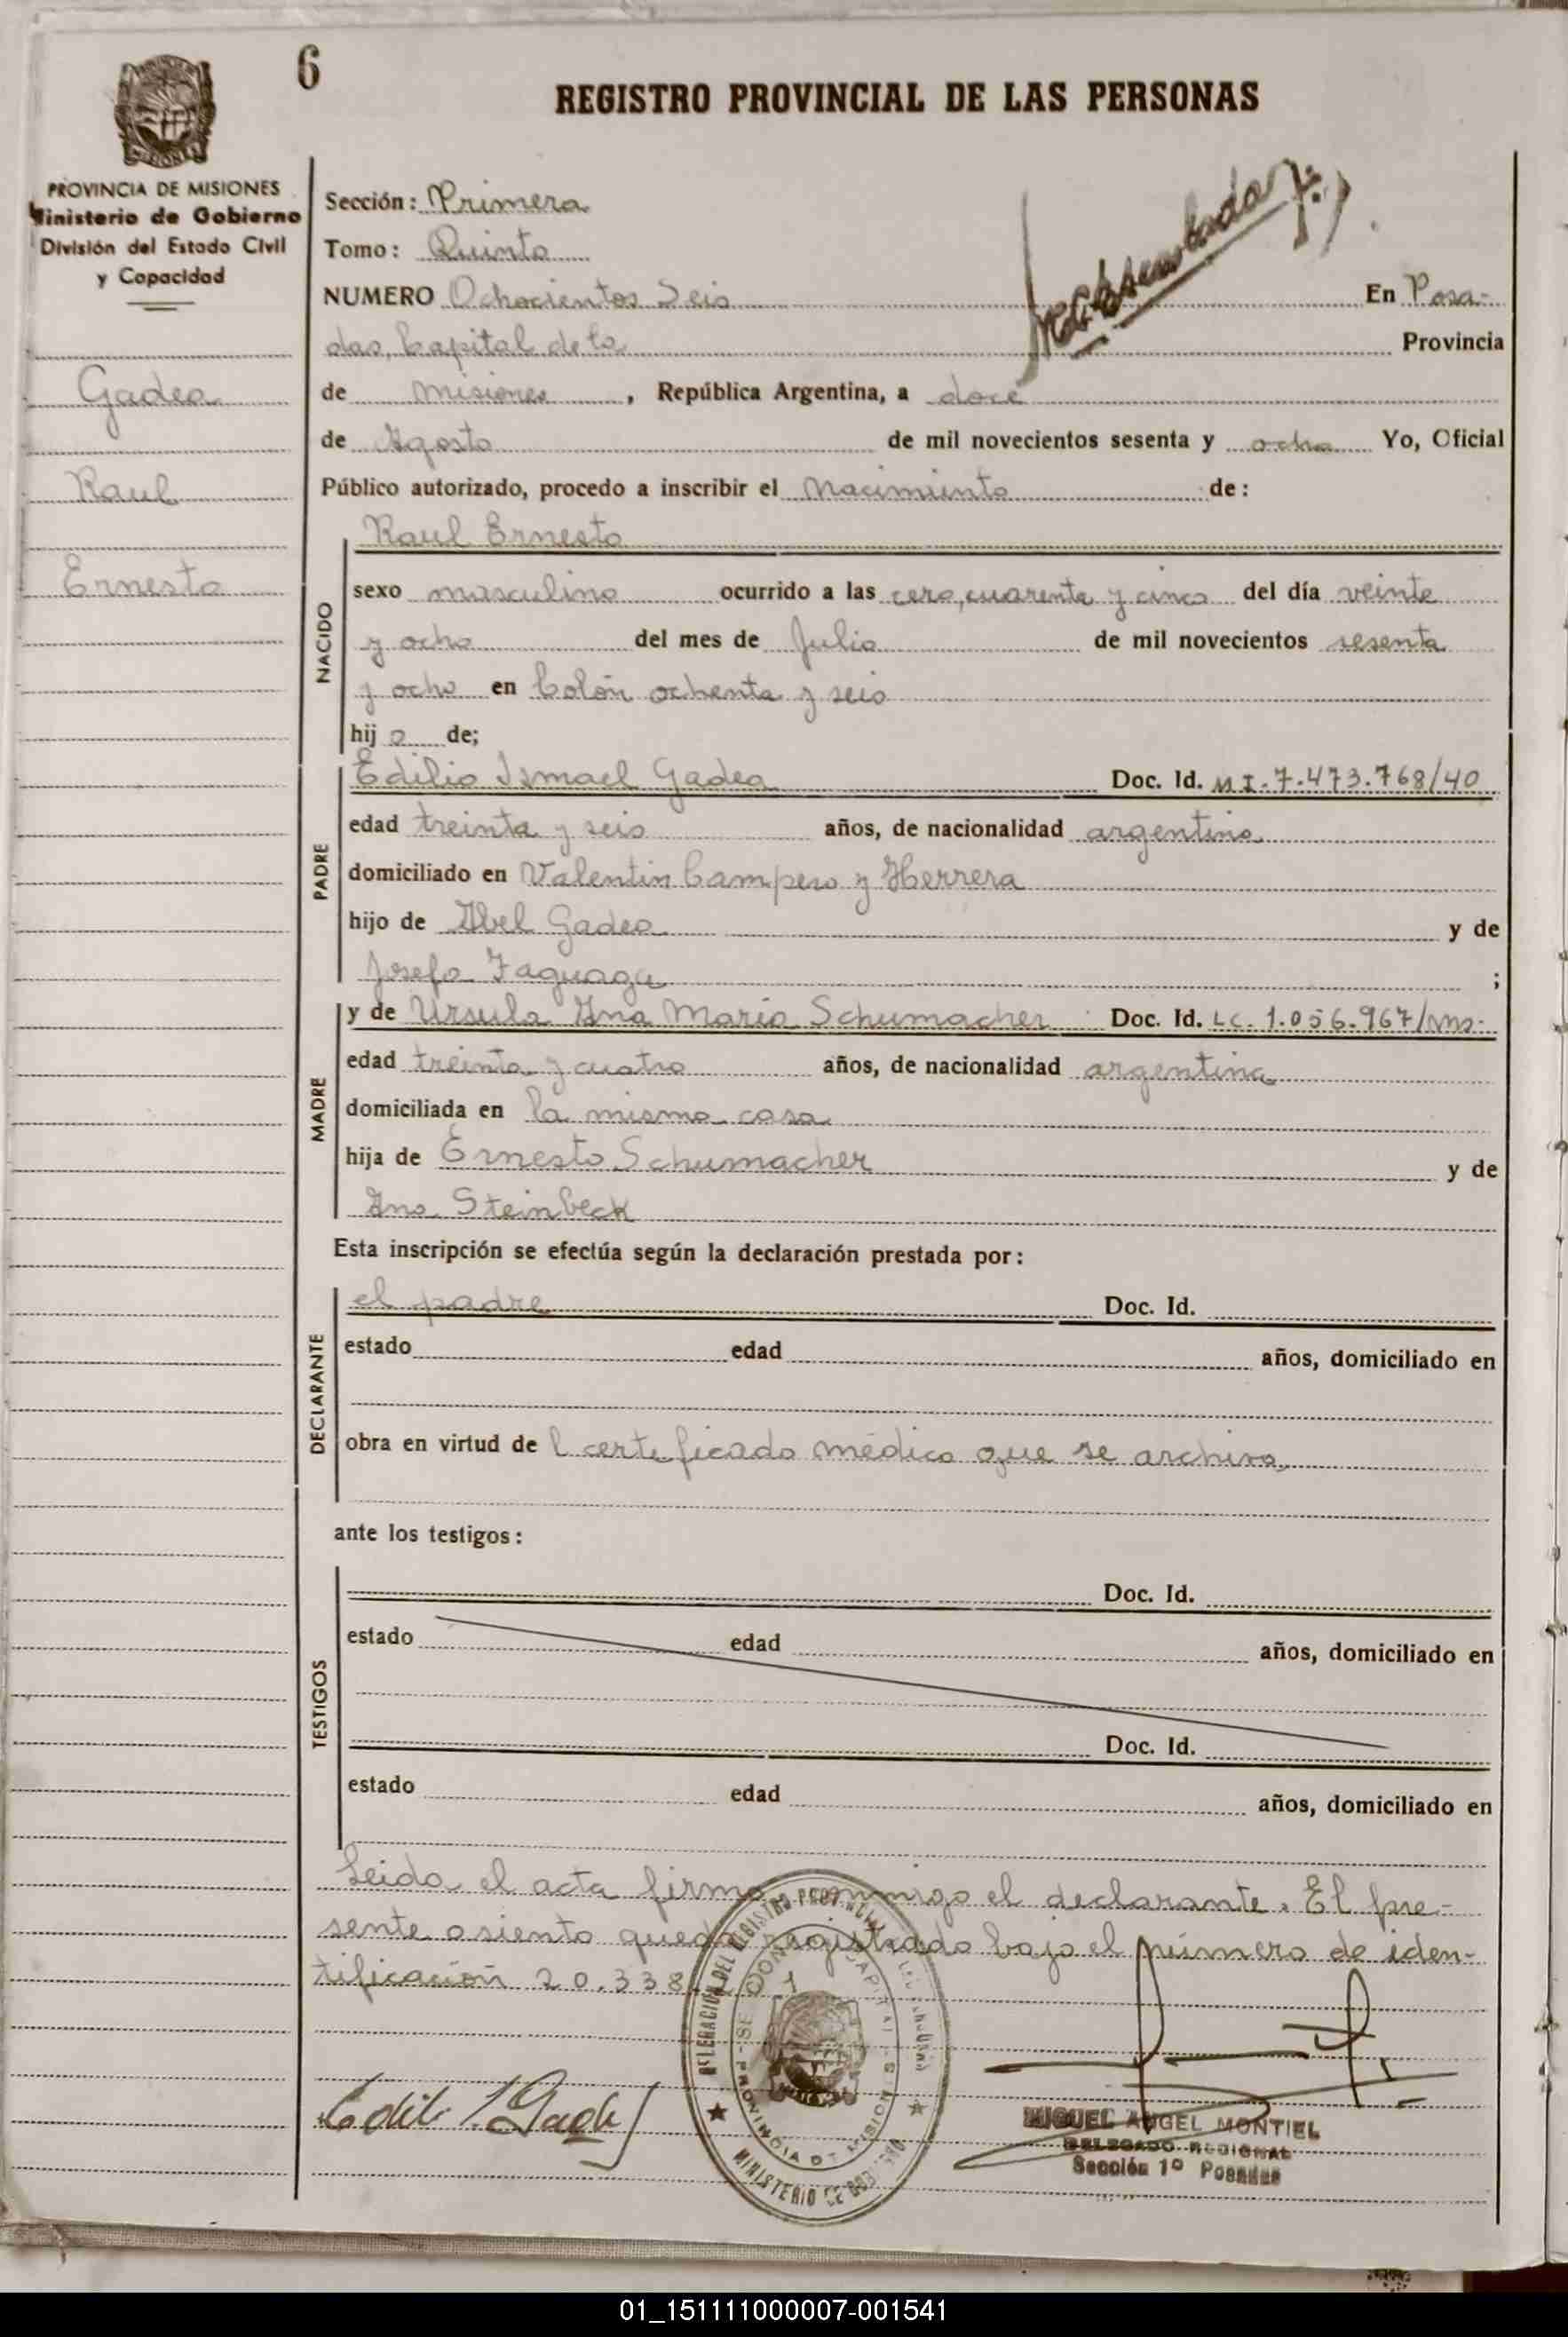 6
REGISTRO PROVINCIAL DE LAS PERSONAS
PROVINCIA DE MISIONES
Ministerio de Gobierno
División del Estado Civil
y Capacidad
Gadea
Raul
Ernesto
Sección: Primera
Tomo: Quinto
NUMERO Ochocientos Seis En Posa-
das, Capital de la Provincia
de Misiones, República Argentina, a doce
de Agosto de mil novecientos sesenta y ocho Yo, Oficial
Público autorizado, procedo a inscribir el Nacimiento de:
NACIDO
Raul Ernesto
sexo masculino ocurrido a las cero, cuarenta y cinco del día veinte
y ocho del mes de Julio de mil novecientos sesenta
y ocho en Colón ochenta y seis
hijo de;
PADRE
Edilio Ismael Gadea Doc. Id. M.I. 7.473.768/40
edad treinta y seis años, de nacionalidad argentina
domiciliado en Valentin Campero y Herrera
hijo de Abel Gadea y de
Josefa Taguaga ;
MADRE
y de Ursula Ana Maria Schumacher Doc. Id. LC. 1.056.967/ms.
edad treinta y cuatro años, de nacionalidad argentina
domiciliada en la misma casa
hija de Ernesto Schumacher y de
Ana Steinbeck
Esta inscripción se efectúa según la declaración prestada por:
DECLARANTE
el padre Doc. Id.
estado edad años, domiciliado en
obra en virtud del certificado médico que se archiva
ante los testigos:
TESTIGOS
Doc. Id.
estado edad años, domiciliado en
Doc. Id.
estado edad años, domiciliado en
Leida el acta firma conmigo el declarante. El pre-
sente asiento queda registrado bajo el número de iden-
tificación 20.338.
MIGUEL ANGEL MONTIEL
DELEGADO REGIONAL
Sección 1º Posadas
01_151111000007-001541